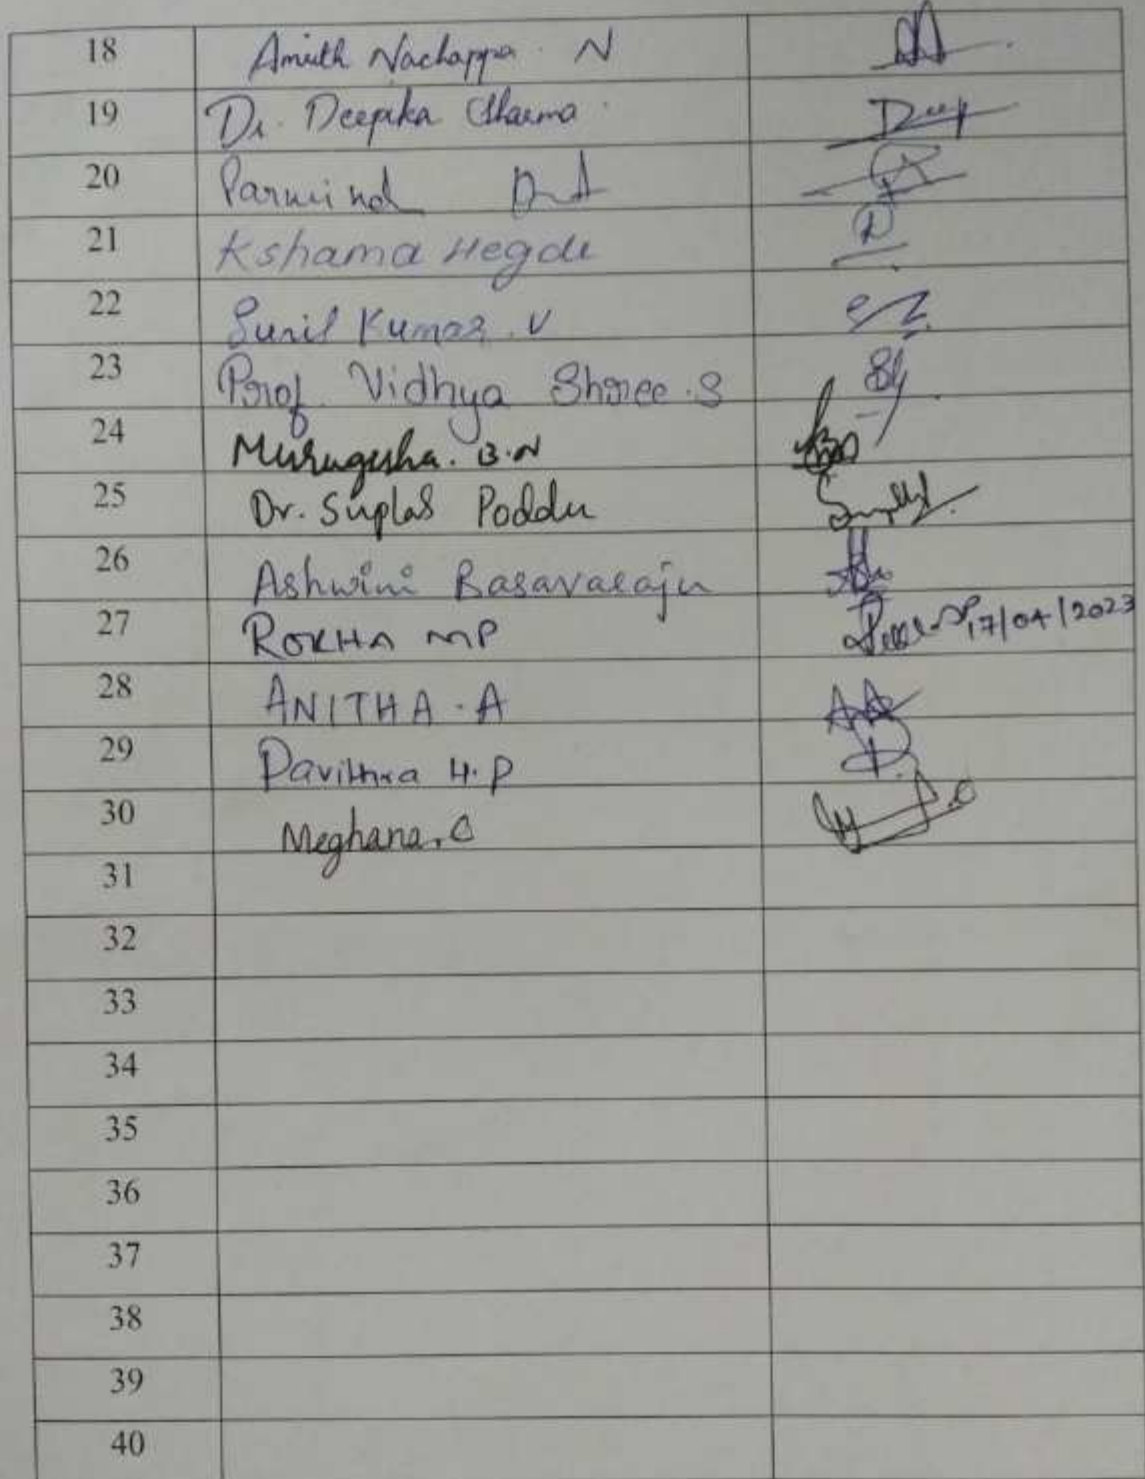 18 Amith Nachappa N
19 Dr. Deepika Sharma Deep
20
21 Kshama Hegde
22 Sunil Kumar V
23 Prof Vidhya Shree S
24 Murugesha. B.N
25 Dr. Suplab Poddu
26 Ashwini Basavaraju
27 ROKHA MP 17/04/2023
28 ANITHA A
29 Pavithra H.P
30 Meghana. C
31
32
33
34
35
36
37
38
39
40